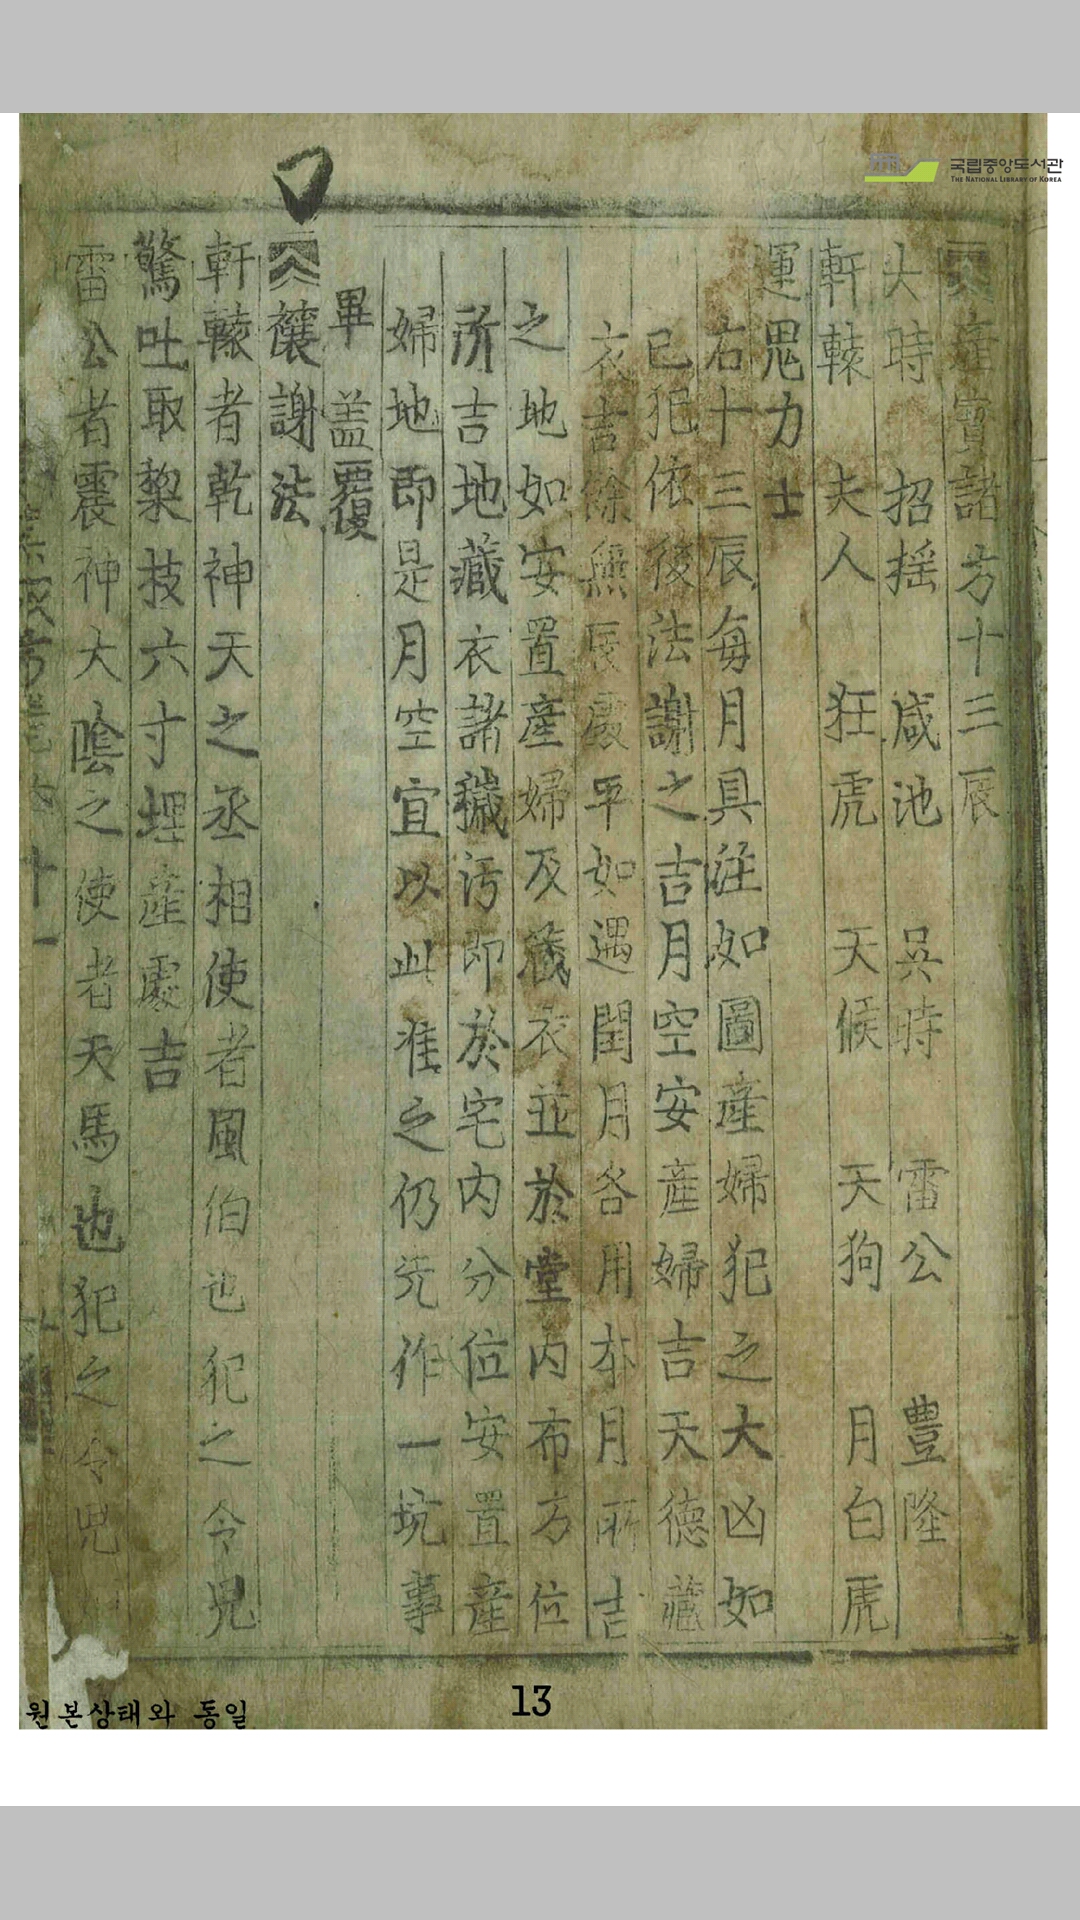 국립중앙도서관
THE NATIONAL LIBRARY OF KOREA
産寶諸方十三辰
大時 招摇 咸池 吳時 雷公 豊隆
軒轅 夫人 狂虎 天候 天狗 月白虎
運鬼力士
右十三辰每月具注如圖産婦犯之大凶如
已犯依後法謝之吉月空安産婦吉天德藏
衣吉餘無辰處平如遇閏月各用本月所吉
之地如安置産婦及藏衣並於堂內布方位
所吉地藏衣諸穢汚即於宅內分位安置産
婦地即是月空宜以此准之仍先作一坑事
畢 盖覆
禳謝法
軒轅者乾神天之丞相使者風伯也犯之令兒
驚吐取黎技六寸埋産處吉
雷公者震神大陰之使者天馬也犯之令兒
十一
원본상태와 동일
13